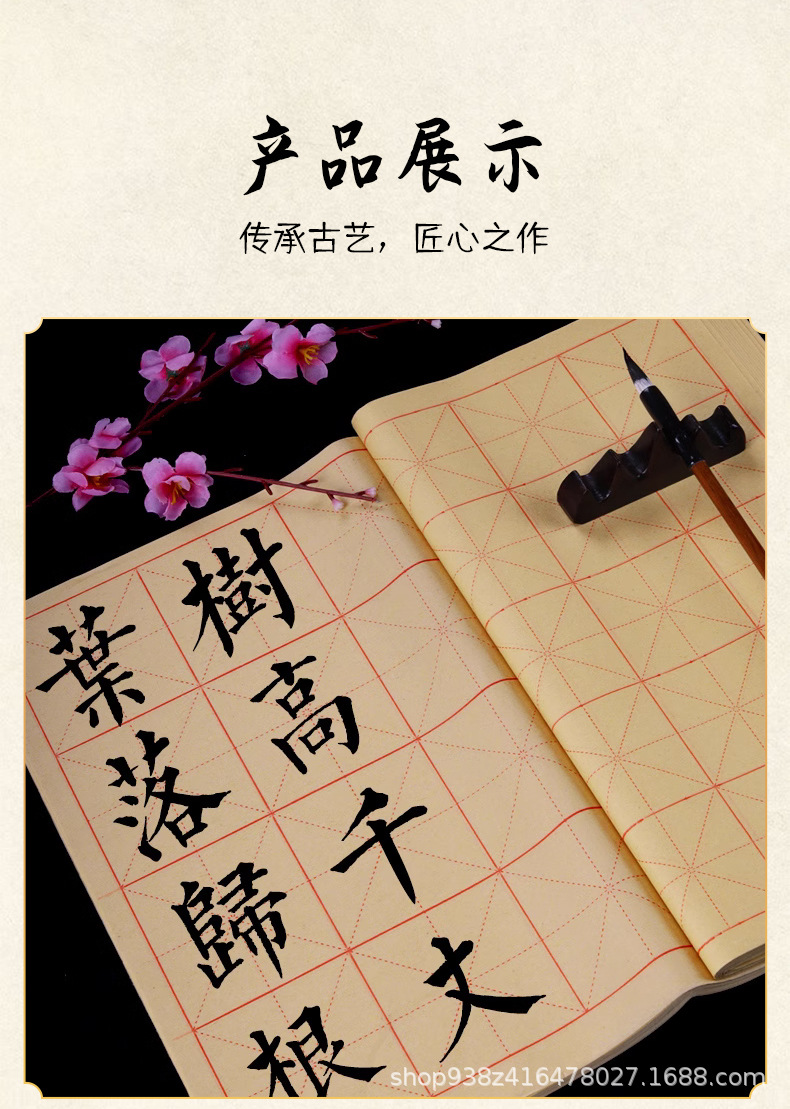 产品展示
传承古艺，匠心之作
樹高千丈
葉落歸根
shop938z416478027.1688.com